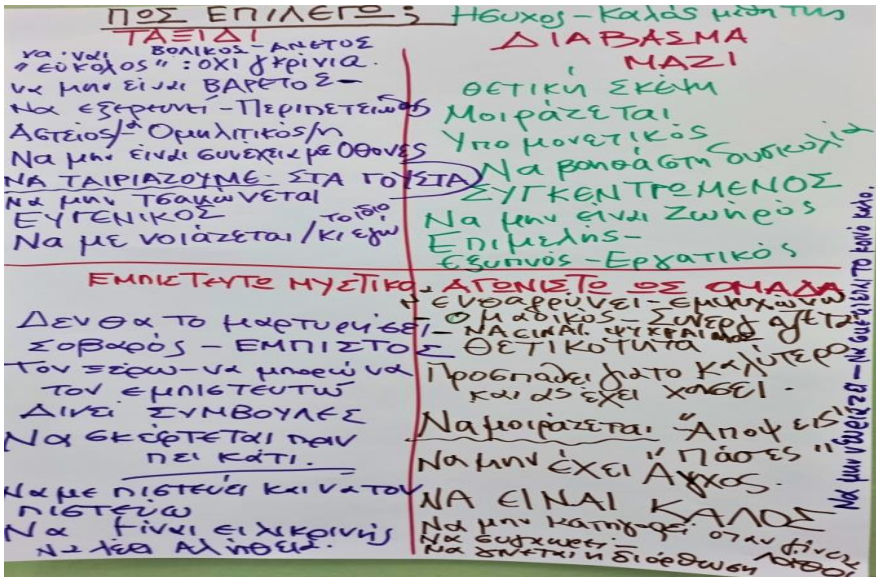 ΠΩΣ ΕΠΙΛΕΓΩ ;
ΤΑΞΙΔΙ
να 'ναι ΒΟΛΙΚΟΣ - ΑΝΕΤΟΣ
"εύκολος" : όχι γκρίνια.
να μην είναι ΒΑΡΕΤΟΣ -
Να εξερευνεί - Περιπετειώδης
Αστείος/α Ομιλητικός/η
Να μην είναι συνέχεια με οθόνες
ΝΑ ΤΑΙΡΙΑΖΟΥΜΕ ΣΤΑ ΓΟΥΣΤΑ
Να μην τσακώνεται
ΕΥΓΕΝΙΚΟΣ
Να με νοιάζεται / κι εγώ το ίδιο
Ησυχος - Καλός μαθητής
ΔΙΑΒΑΣΜΑ
ΜΑΖΙ
Θετική Σκέψη
Μοιράζεται
Υπομονετικός
Να βοηθά στη δυσκολία
ΣΥΓΚΕΝΤΡΩΜΕΝΟΣ
Να μην είναι Ζωηρός
Επιμελής -
εξυπνός - Εργατικός
ΕΜΠΙΣΤΕΥΤΩ ΜΥΣΤΙΚΟ
Δεν θα το μαρτυρήσει -
Σοβαρός - ΕΜΠΙΣΤΟΣ
Τον ξέρω - να μπορώ να
τον εμπιστευτώ
Δίνει ΣΥΜΒΟΥΛΕΣ
Να σκέφτεται πριν
πει κάτι.
Να με πιστεύει και να τον
πιστεύω
Να είναι ειλικρινής
Να λέει Αλήθεια.
ΑΓΩΝΙΣΤΩ ΩΣ ΟΜΑΔΑ
ενθαρρύνει - εμψυχώνω
Ομαδικός - Συνεργάζεται
ΝΑ ΕΙΝΑΙ ΨΥΧΡΑΙΜΟΣ
ΘΕΤΙΚΟΤΗΤΑ
Προσπαθεί για το καλύτερο
και ας έχει χάσει.
Να μοιράζεται "Απόψεις"
"Πάσες"
Να μην έχει Άγχος.
ΝΑ ΕΙΝΑΙ ΚΑΛΟΣ
Να μην κατηγορεί όταν γίνεται λάθος
Να συγχωρεί -
Να γίνεται η διόρθωση
Να μην νευριάζει - Να σκέφτεται το κοινό καλό.